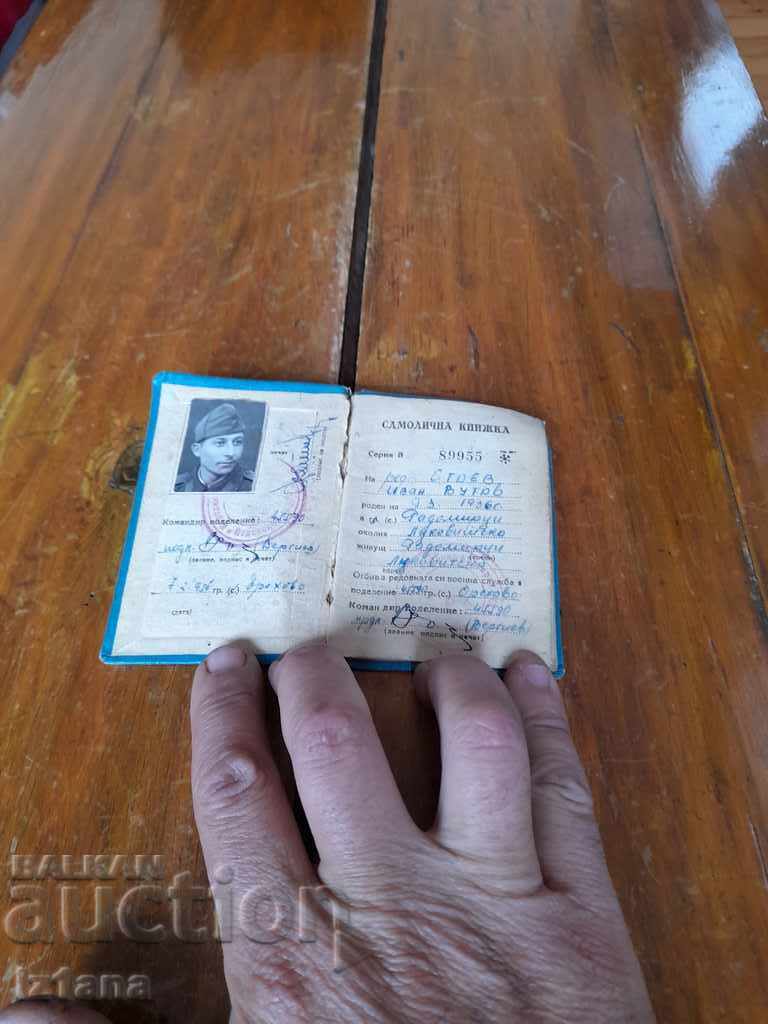 печат
Командир поделение: 45590
(Вергиев)
(звание, подпис и печат)
гр. (с.) Орехово
(дата)
САМОЛИЧНА КНИЖКА
Серия Й 89955
На
Иван Вутов
роден на 1936 г.
в гр. (с.) Радомирци
околия Луковитска
живущ Радомирци
Луковитска
Отбива редовната си военна служба в
поделение 45590 гр. (с.) Орехово
Командир поделение: 45590
(Вергиев)
(звание подпис и печат)
BALKAN
auction
iz1ana